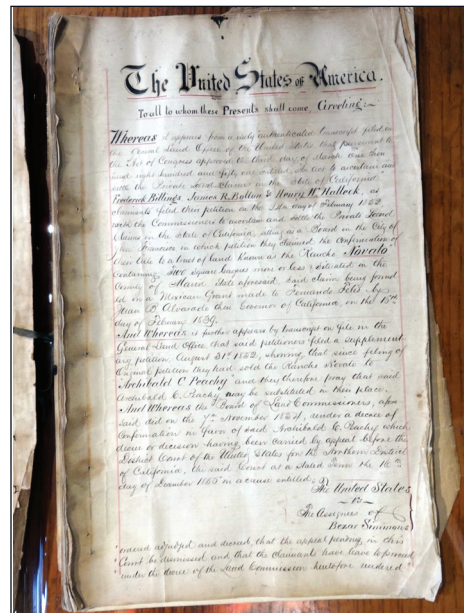 The United States of America.
To all to whom these Presents shall come, Greeting:
Whereas it appears from a duly authenticated transcript filed in
the General Land Office of the United States, that pursuant to
the Act of Congress approved the third day of March One thou
sand eight hundred and fifty one entitled "An Act to ascertain and
settle the Private Land Claims in the State of California,"
Frederick Billings, James R. Bolton & Henry W. Halleck, as
claimants filed their petition on the day of February 1852
with the Commissioners to ascertain and settle the Private Land
Claims in the State of California, sitting as a Board in the City of
San Francisco in which petition they claimed the confirmation of
their title to a tract of land known as the Rancho Novato
containing square leagues more or less, situated in the
County of State aforesaid, said claim being found
ed on a Mexican Grant made to Fernando Feliz by
Juan B. Alvarado then Governor of California on the
day of February 1839.
And Whereas it further appears by transcript on file in the
General Land Office, that said petitioners filed a supplement
ary petition August 31st 1852, showing that since filing of
original petition they had sold the Rancho Novato to
Archibald C. Peachy and they therefore pray that said
Archibald C. Peachy may be substituted in their place.
And Whereas the Board of Land Commissioners, afore
said did on the November 1854, render a decree of
Confirmation in favor of said Archibald C. Peachy which
decree or decision having been carried by appeal before the
District Court of the United States for the Northern District
of California, the said Court at a stated Term the
day of December 1865 in a cause entitled:
The United States
vs
The Assignees of
Bezar Simmons
"ordered adjudged and decreed, that the appeal pending, in this
Court be dismissed and that the claimants have leave to proceed
under the decree of the Land Commission heretofore rendered